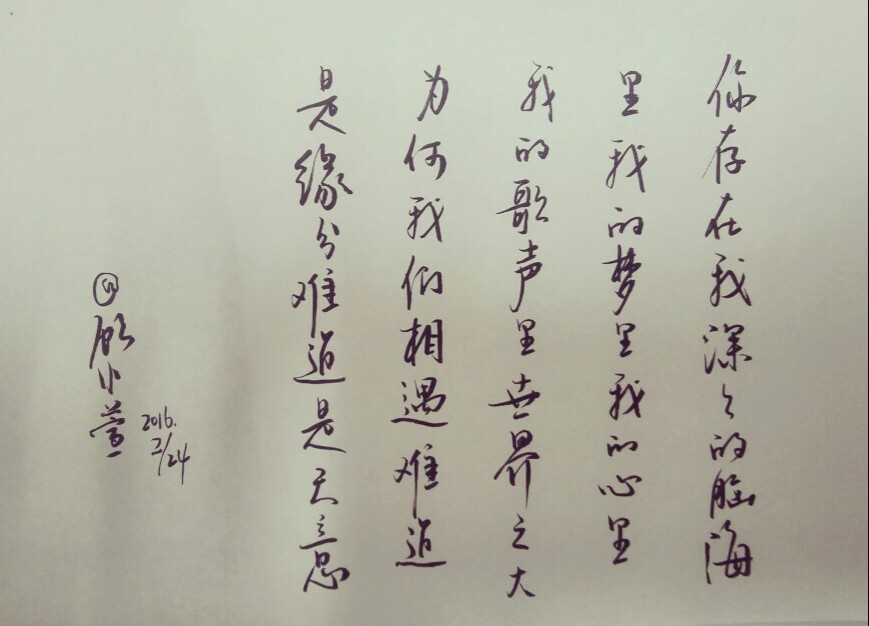 你存在我深々的脑海
里我的梦里我的心里
我的歌声里世界之大
为何我们相遇难道
是缘分难道是天意
@顾小萱
2016.
2/24